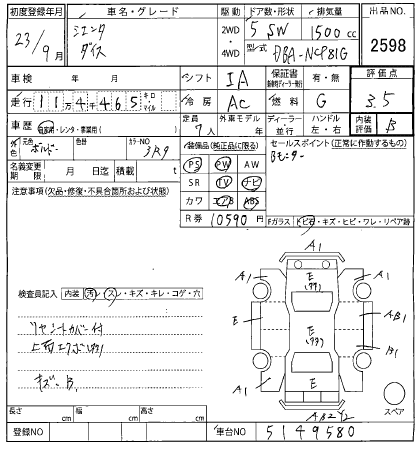 初度登録年月 車名・グレード 駆動 ドア数・形状 排気量 出品NO.
23/9月 シエンタ ダイス 2WD ・ 4WD 5 SW 1500cc 2598
型式 DBA-NCP81G
車検 年 月 シフト IA 保証書 有・無 評価点
走行 11万4465 キロ・マイル 冷房 AC 燃料 G 3.5
車歴 自家用・レンタ・事業用( ) 定員 7人 外車モデル 年 ディーラー・並行 ハンドル 左・右 内装評価 B
外色 元色 ボルドー 色替 カラーNO 3R9
装備品(純正品に限る) セールスポイント(正常に作動するもの)
名義変更期限 月 日迄 積載 t
PS PW AW Bモニター
SR TV ナビ
カワ エアB ABS
注意事項(欠品・修復・不具合箇所および状態)
R券 10590円
Fガラス トビ石・キズ・ヒビ・ワレ・リペア跡
検査員記入 内装 汚・スレ・キズ・キレ・コゲ・穴
リヤシートカバー付
キズ B
A1
A1 A1
E (多数)
E AB1
E (多数)
B1
A1 E A1
AB2 Y2
スペア
長さ cm 幅 cm 高さ cm
登録NO 車台NO 5149580